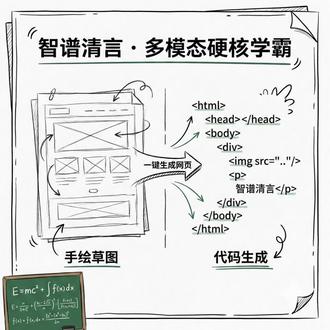 智谱清言·多模态硬核学霸
一键生成网页
<html>
<head></head>
<body>
<div>
<img src=".."/>
<p>
智谱清言</p>
</div>
</body>
</html>
手绘草图
代码生成
E=mc²+∫f(x)dx